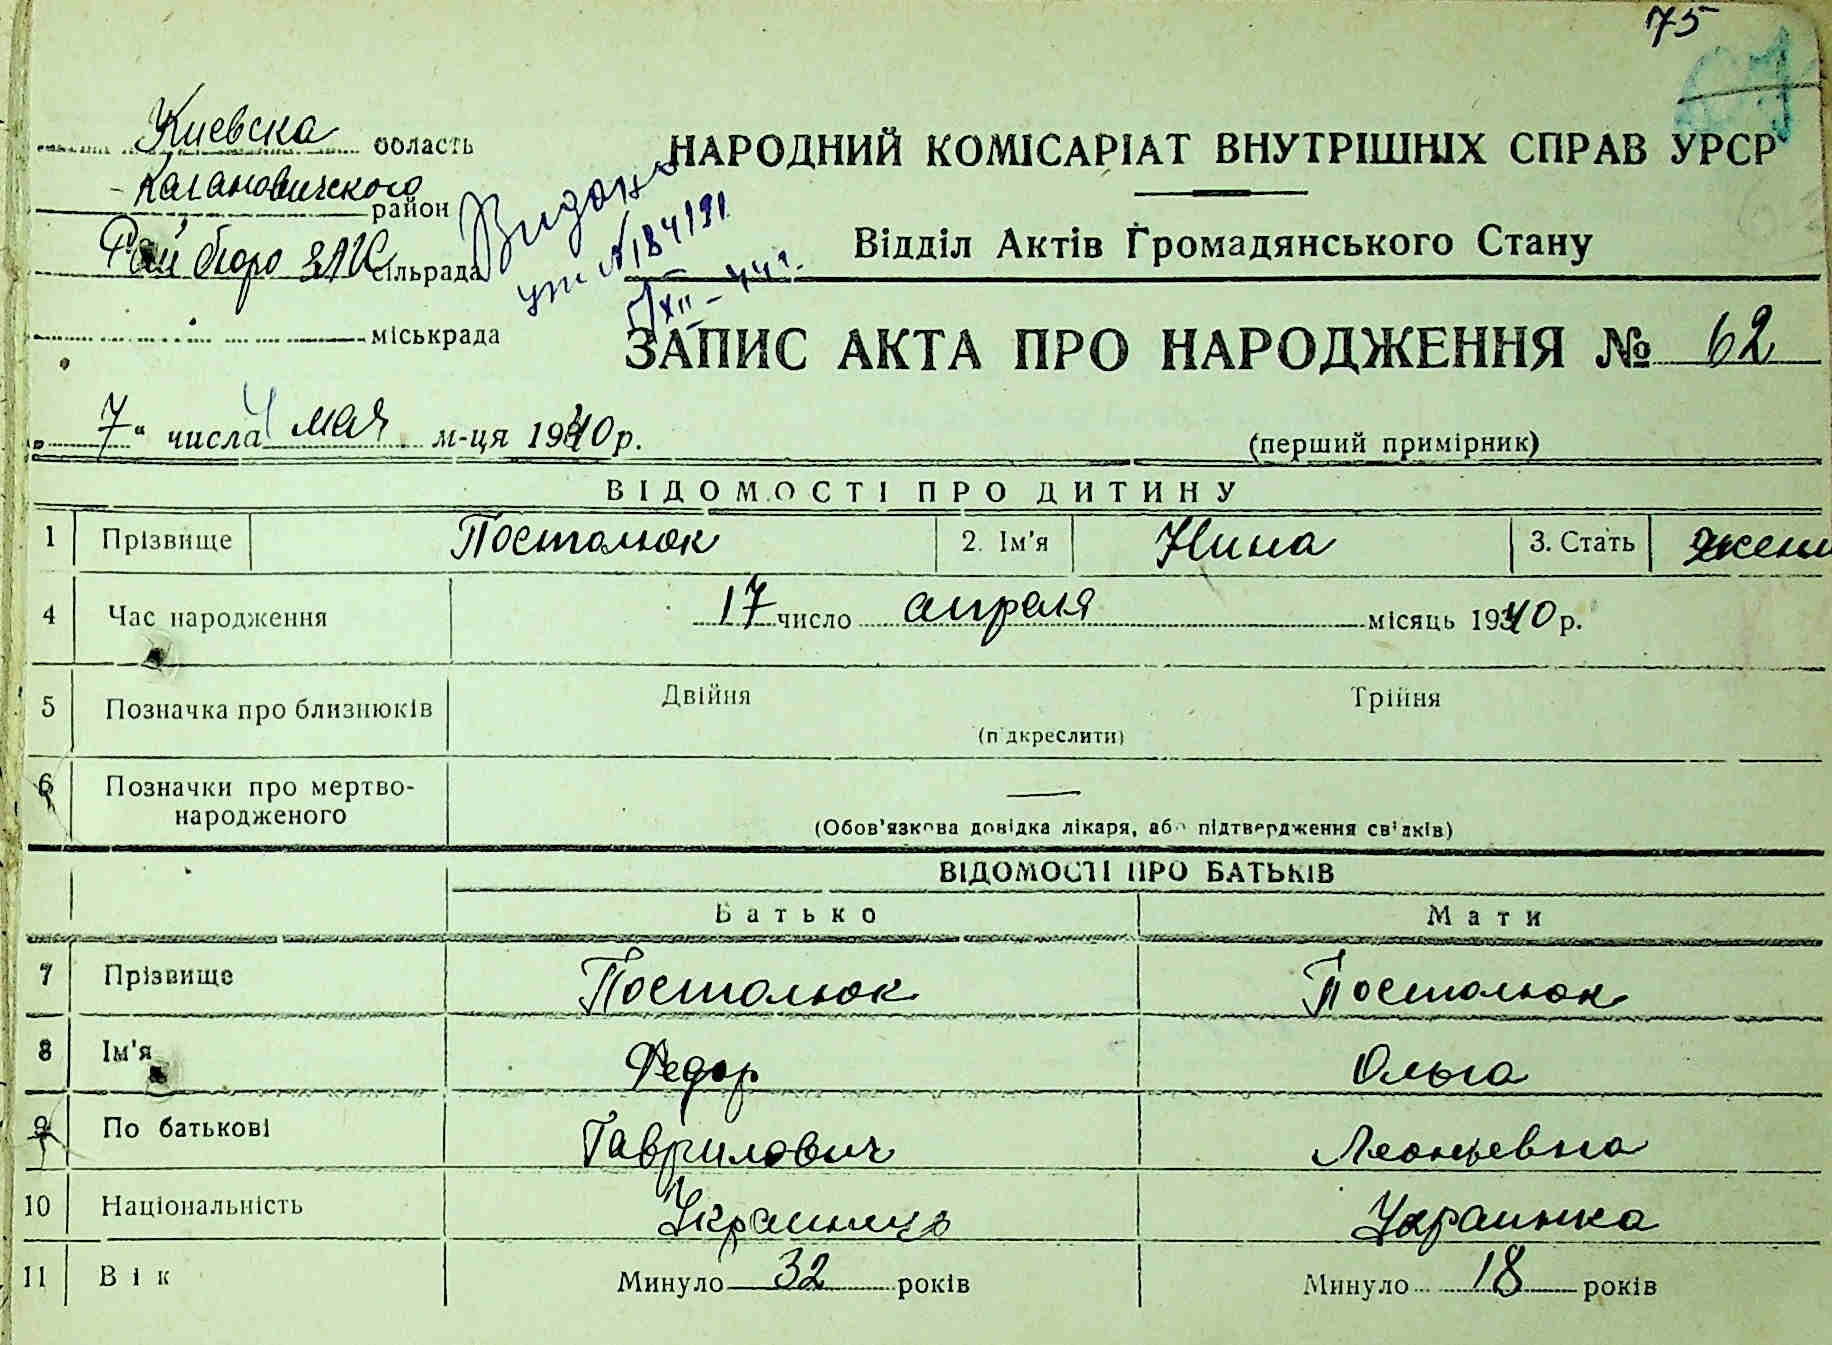 75
Киевска область
Кагановического район
Рай бюро ЗАГС сільрада
міськрада
НАРОДНИЙ КОМІСАРІАТ ВНУТРІШНІХ СПРАВ УРСР
Видано
№ 184191
5/XII – 44 г.
Відділ Актів Громадянського Стану
ЗАПИС АКТА ПРО НАРОДЖЕННЯ № 62
„7“ числа мая м-ця 1940 р.
(перший примірник)
ВІДОМОСТІ ПРО ДИТИНУ
1 Прізвище Постолюк 2. Ім'я Нина 3. Стать жен
4 Час народження 17 число апреля місяць 1940 р.
5 Позначка про близнюків Двійня Трійня
(підкреслити)
6 Позначки про мертво-
народженого —
(Обов'язкова довідка лікаря, або підтвердження свідків)
ВІДОМОСТІ ПРО БАТЬКІВ
Батько Мати
7 Прізвище Постолюк Постолюк
8 Ім'я Федор Ольга
9 По батькові Гаврилович Леонтьевна
10 Національність Украинец Украинка
11 Вік Минуло 32 років Минуло 18 років